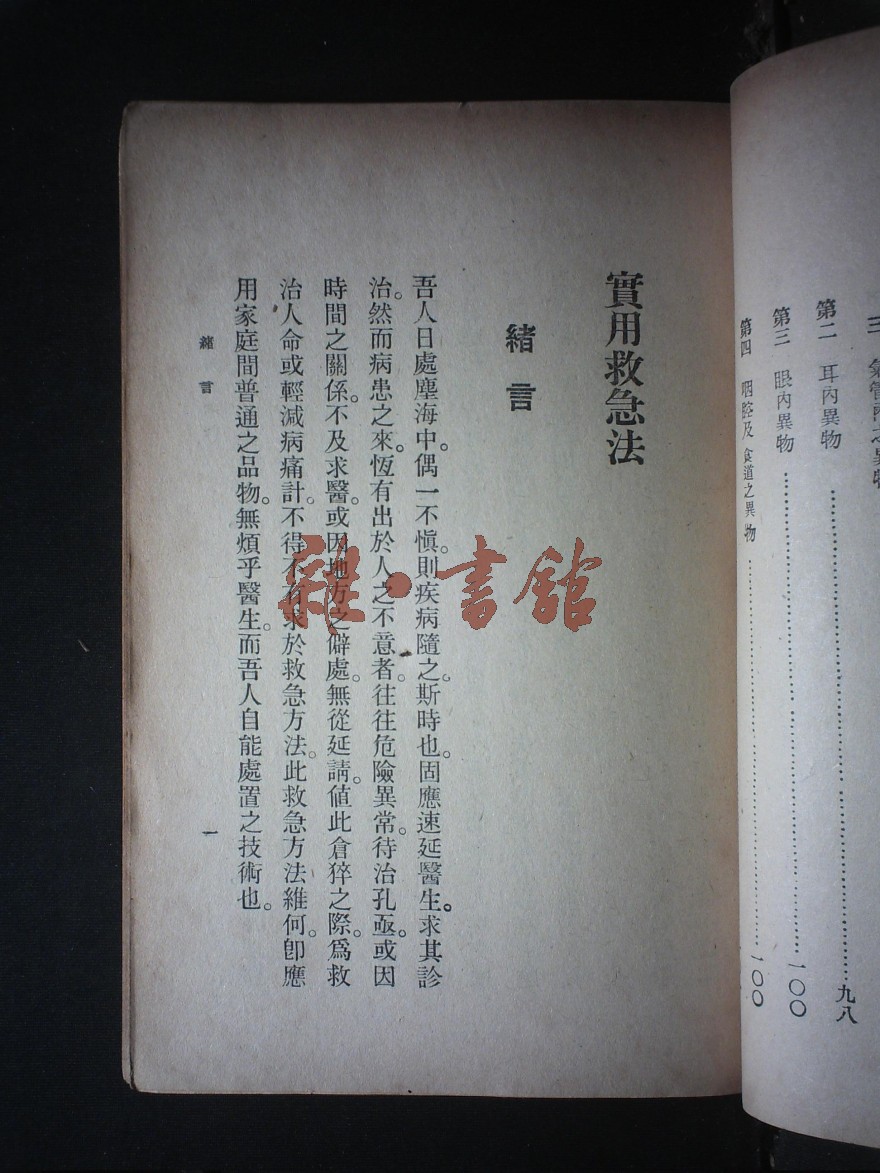 三 氣管內之異物
第二 耳內異物⋯⋯⋯⋯⋯⋯⋯⋯九八
第三 眼內異物⋯⋯⋯⋯⋯⋯⋯⋯一〇〇
第四 咽腔及食道之異物⋯⋯⋯⋯⋯⋯⋯⋯一〇〇
實用救急法
緒言
吾人日處塵海中。偶一不愼。則疾病隨之。斯時也。固應速延醫生。求其診
治。然而病患之來。恆有出於人之不意者。往往危險異常。待治孔亟。或因
時間之關係。不及求醫。或因地方之僻處。無從延請。値此倉猝之際。爲救
治人命或輕減病痛計。不得不有求於救急方法。此救急方法維何。卽應
用家庭間普通之品物。無煩乎醫生。而吾人自能處置之技術也。
緒言
一
雜·書館